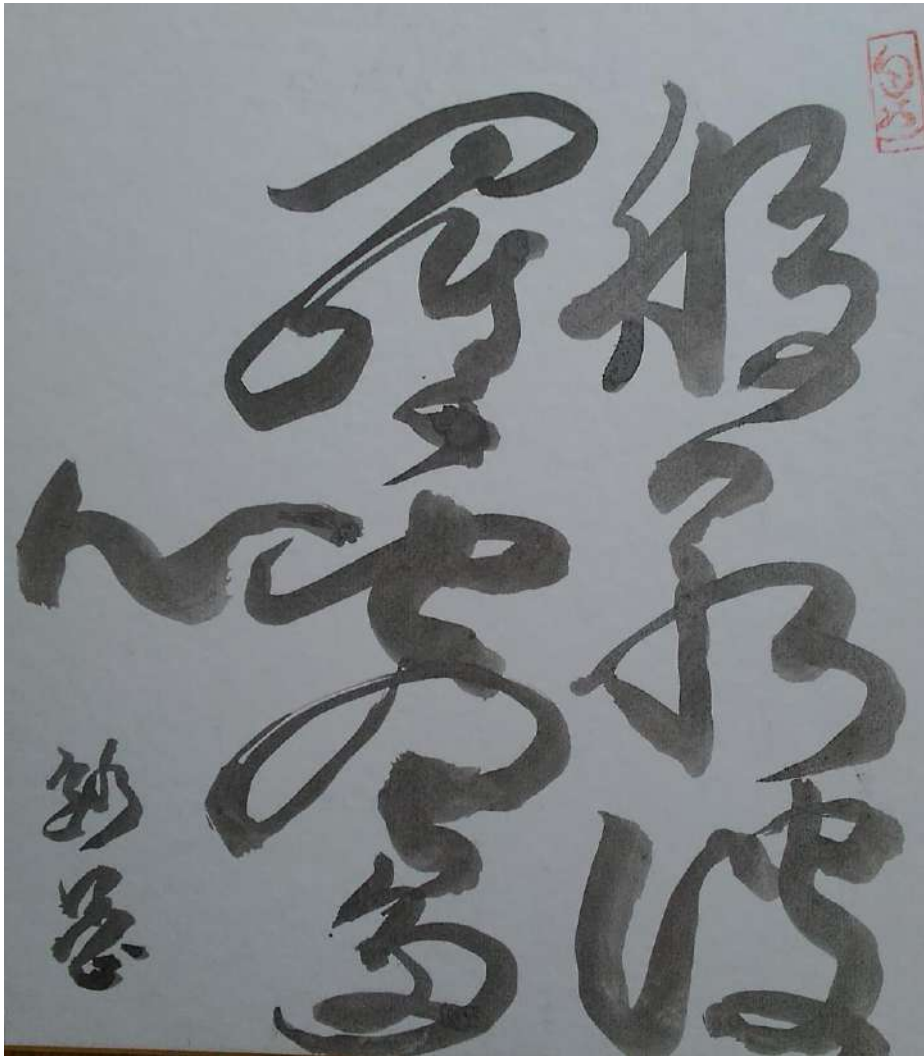 般若波
羅蜜多
心